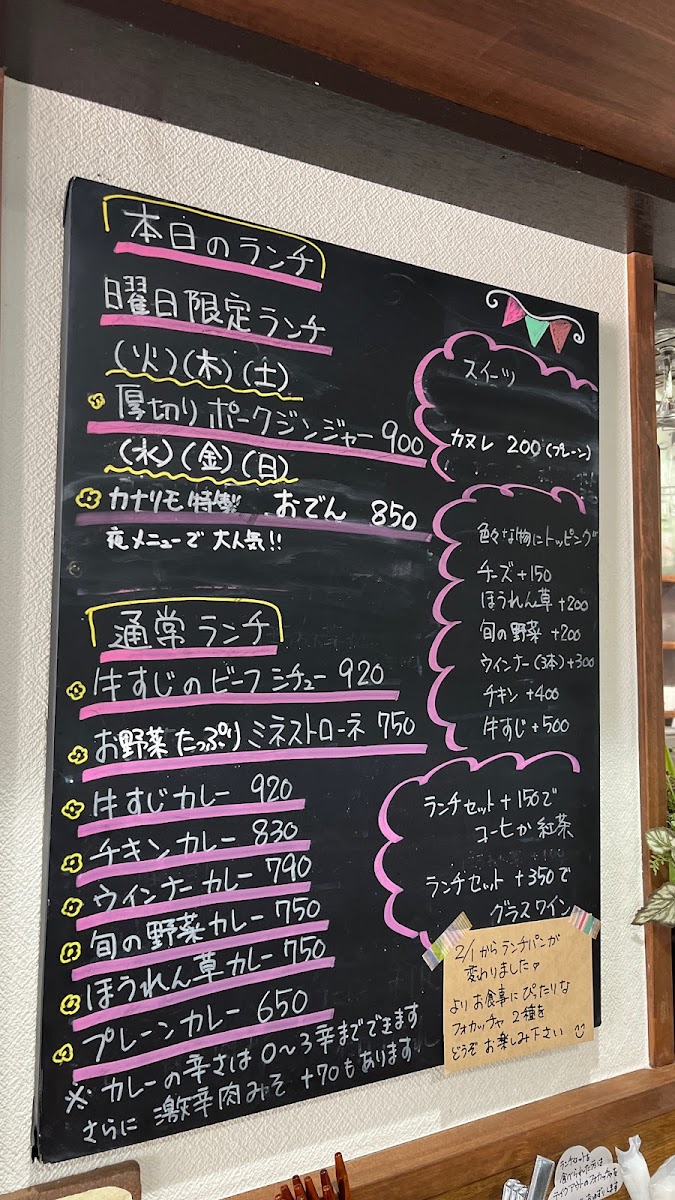 本日のランチ
曜日限定ランチ
(火)(木)(土)
厚切りポークジンジャー 900
(水)(金)(日)
カナリモ特製 おでん 850
夜メニューで大人気!!
通常ランチ
牛すじのビーフシチュー 920
お野菜たっぷりミネストローネ 750
牛すじカレー 920
チキンカレー 830
ウインナーカレー 790
旬の野菜カレー 750
ほうれん草カレー 750
プレーンカレー 650
※カレーの辛さは0〜3辛までできます
さらに激辛肉みそ+70もあります
スイーツ
カヌレ 200(プレーン)
色々な物にトッピング
チーズ+150
ほうれん草+200
旬の野菜+200
ウインナー(3本)+300
チキン+400
牛すじ+500
ランチセット+150で
コーヒか紅茶
ランチセット+350で
グラスワイン
2/1からランチパンが
変わりました♡
よりお食事にぴったりな
フォカッチャ2種を
どうぞお楽しみ下さい